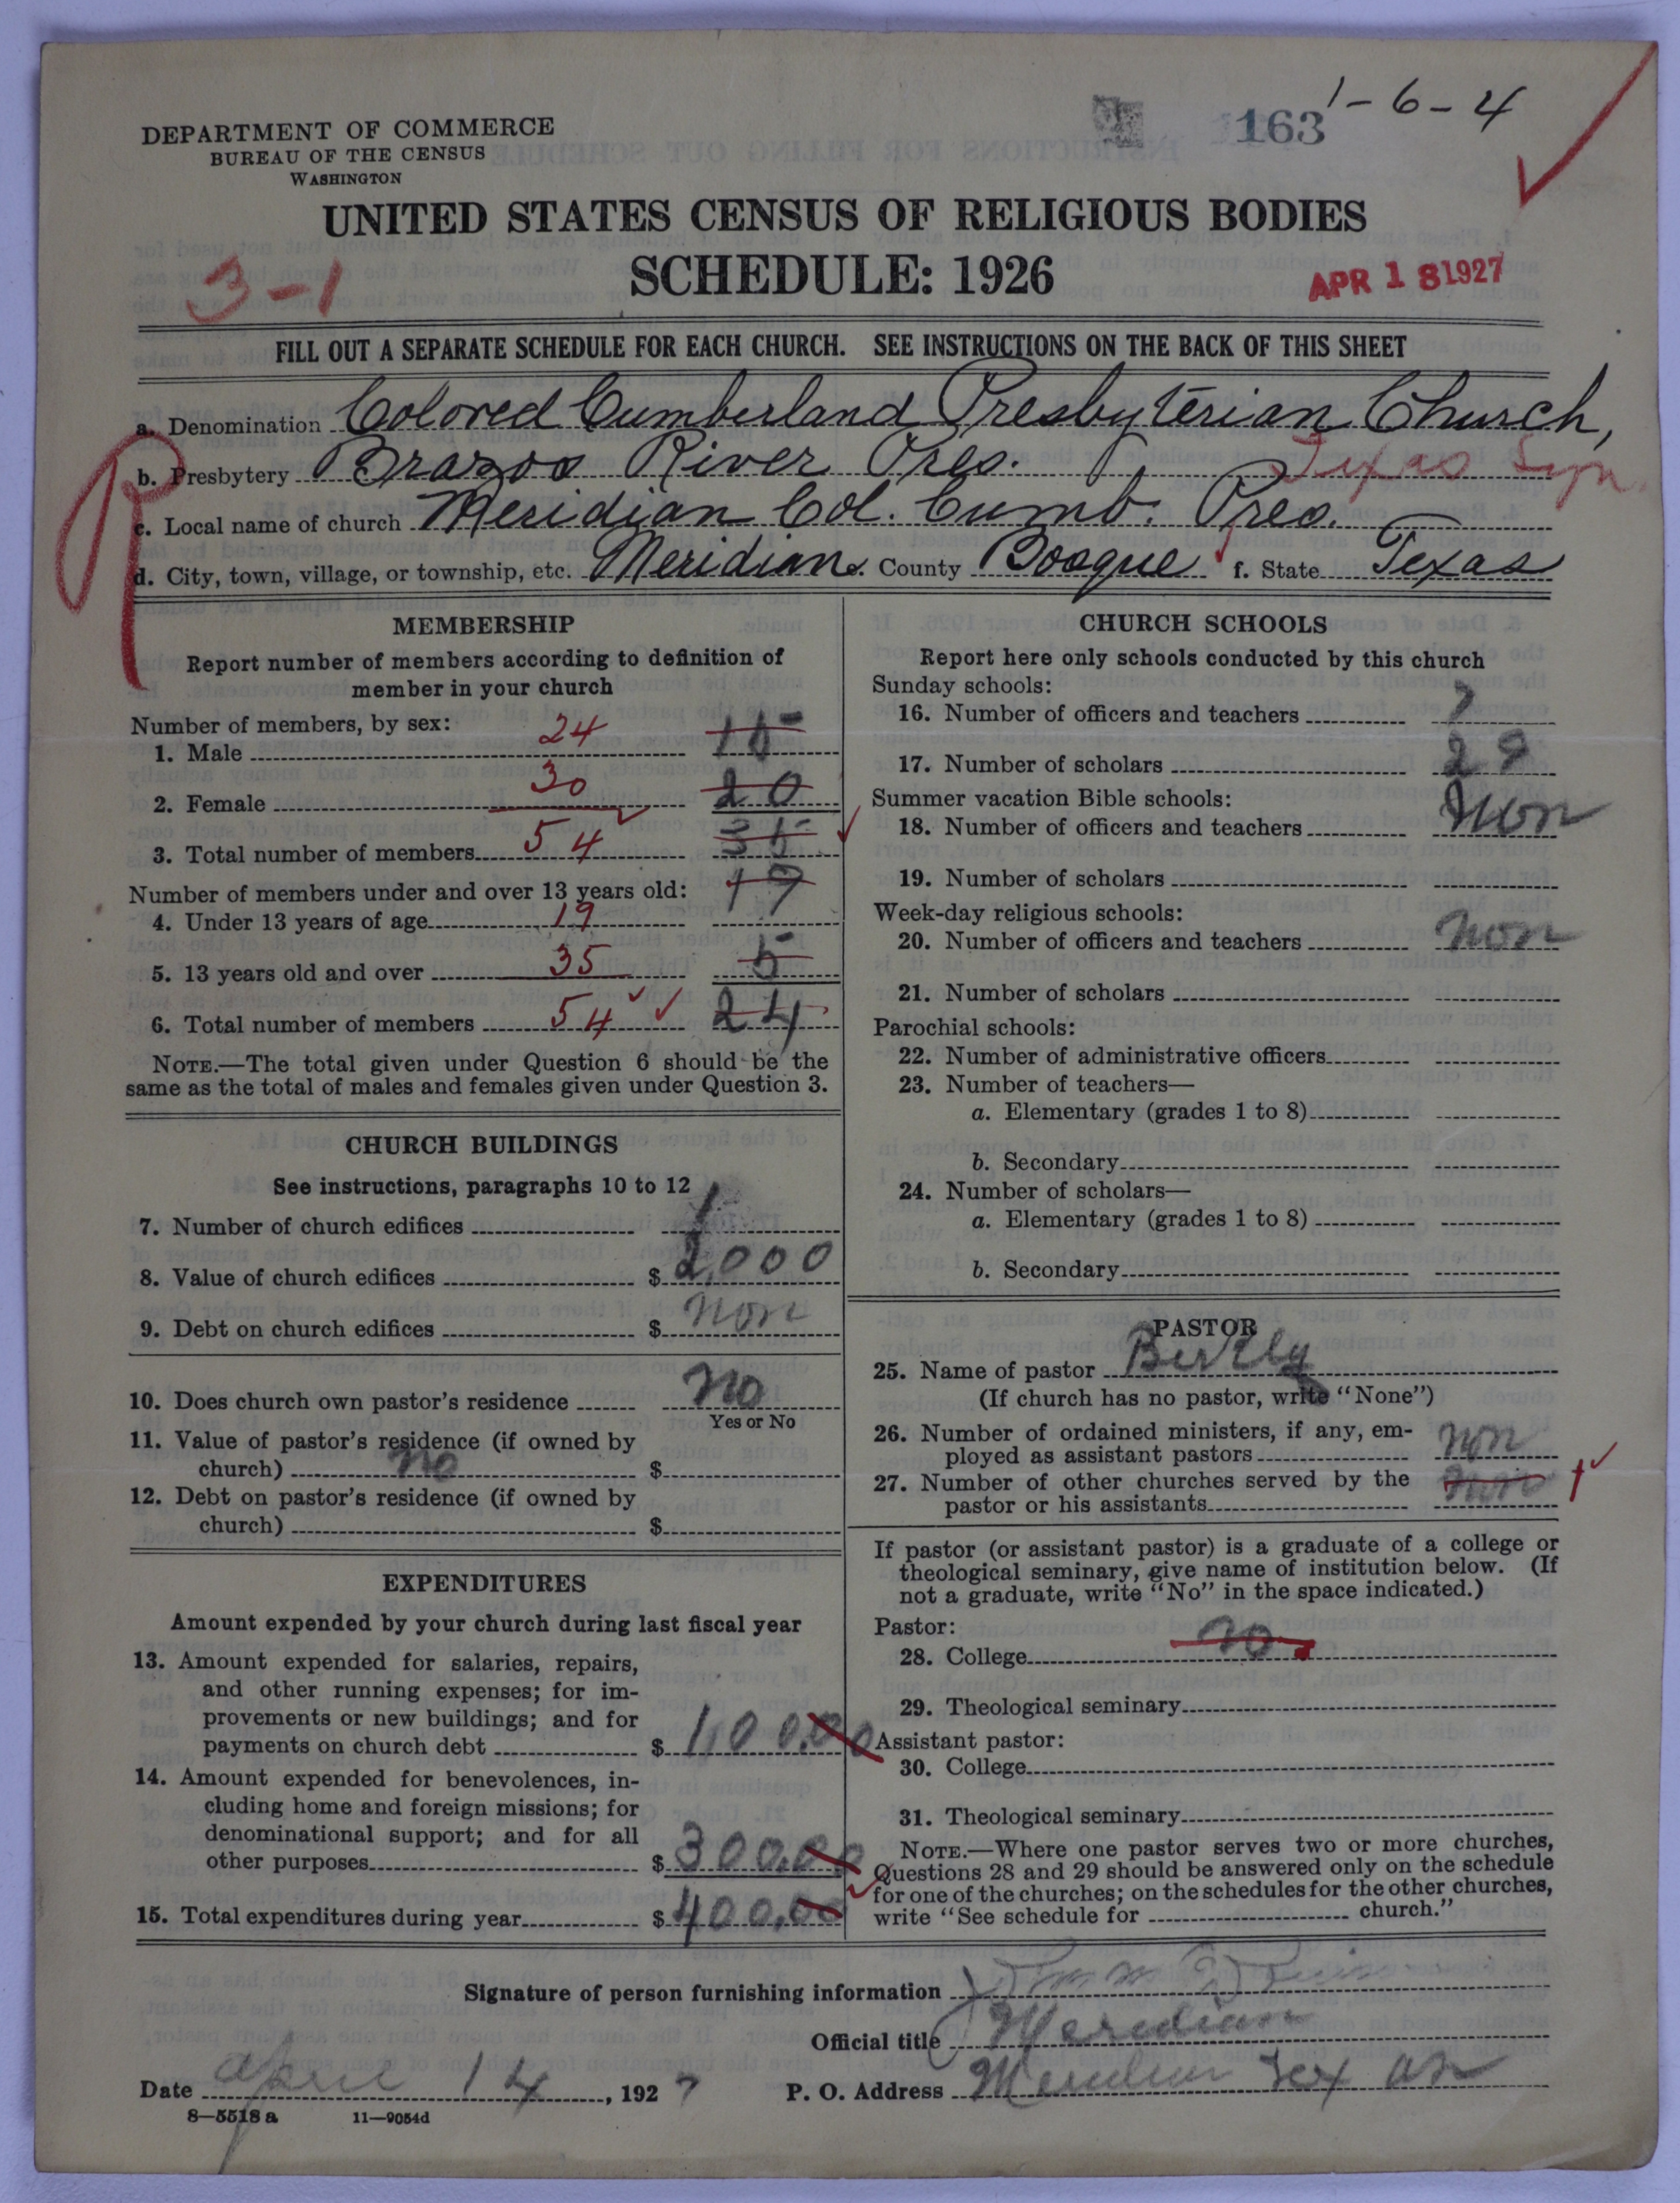 163 1-6-4
DEPARTMENT OF COMMERCE
BUREAU OF THE CENSUS
WASHINGTON
UNITED STATES CENSUS OF RELIGIOUS BODIES
SCHEDULE: 1926
3-1
APR 18 1927
FILL OUT A SEPARATE SCHEDULE FOR EACH CHURCH. SEE INSTRUCTIONS ON THE BACK OF THIS SHEET
a. Denomination Colored Cumberland Presbyterian Church,
b. Presbytery Brazos River Pres. Texas Syn.
R
c. Local name of church Meridian Col. Cumb. Pres.
d. City, town, village, or township, etc. Meridian e. County Bosque f. State Texas
MEMBERSHIP
Report number of members according to definition of
member in your church
Number of members, by sex:
1. Male 24 15
2. Female 30 20
3. Total number of members 54 35
Number of members under and over 13 years old: 19
4. Under 13 years of age 19
5. 13 years old and over 35 5
6. Total number of members 54 24
NOTE.—The total given under Question 6 should be the
same as the total of males and females given under Question 3.
CHURCH BUILDINGS
See instructions, paragraphs 10 to 12
7. Number of church edifices 1
8. Value of church edifices $ 2,000
9. Debt on church edifices $ non
10. Does church own pastor's residence no
Yes or No
11. Value of pastor's residence (if owned by
church) no $
12. Debt on pastor's residence (if owned by
church) $
EXPENDITURES
Amount expended by your church during last fiscal year
13. Amount expended for salaries, repairs,
and other running expenses; for im-
provements or new buildings; and for
payments on church debt $ 100.00
14. Amount expended for benevolences, in-
cluding home and foreign missions; for
denominational support; and for all
other purposes $ 300.00
15. Total expenditures during year $ 400.00
CHURCH SCHOOLS
Report here only schools conducted by this church
Sunday schools:
16. Number of officers and teachers 7
17. Number of scholars 29
Summer vacation Bible schools:
18. Number of officers and teachers Non
19. Number of scholars
Week-day religious schools:
20. Number of officers and teachers non
21. Number of scholars
Parochial schools:
22. Number of administrative officers
23. Number of teachers—
a. Elementary (grades 1 to 8)
b. Secondary
24. Number of scholars—
a. Elementary (grades 1 to 8)
b. Secondary
PASTOR
25. Name of pastor
(If church has no pastor, write "None")
26. Number of ordained ministers, if any, em-
ployed as assistant pastors non
27. Number of other churches served by the
pastor or his assistants non 1
If pastor (or assistant pastor) is a graduate of a college or
theological seminary, give name of institution below. (If
not a graduate, write "No" in the space indicated.)
Pastor:
28. College no
29. Theological seminary
Assistant pastor:
30. College
31. Theological seminary
NOTE.—Where one pastor serves two or more churches,
Questions 28 and 29 should be answered only on the schedule
for one of the churches; on the schedules for the other churches,
write "See schedule for church."
Signature of person furnishing information
Official title Meridian
Date April 14, 1927 P. O. Address Meridian Texas
8—5518 a 11—9054d